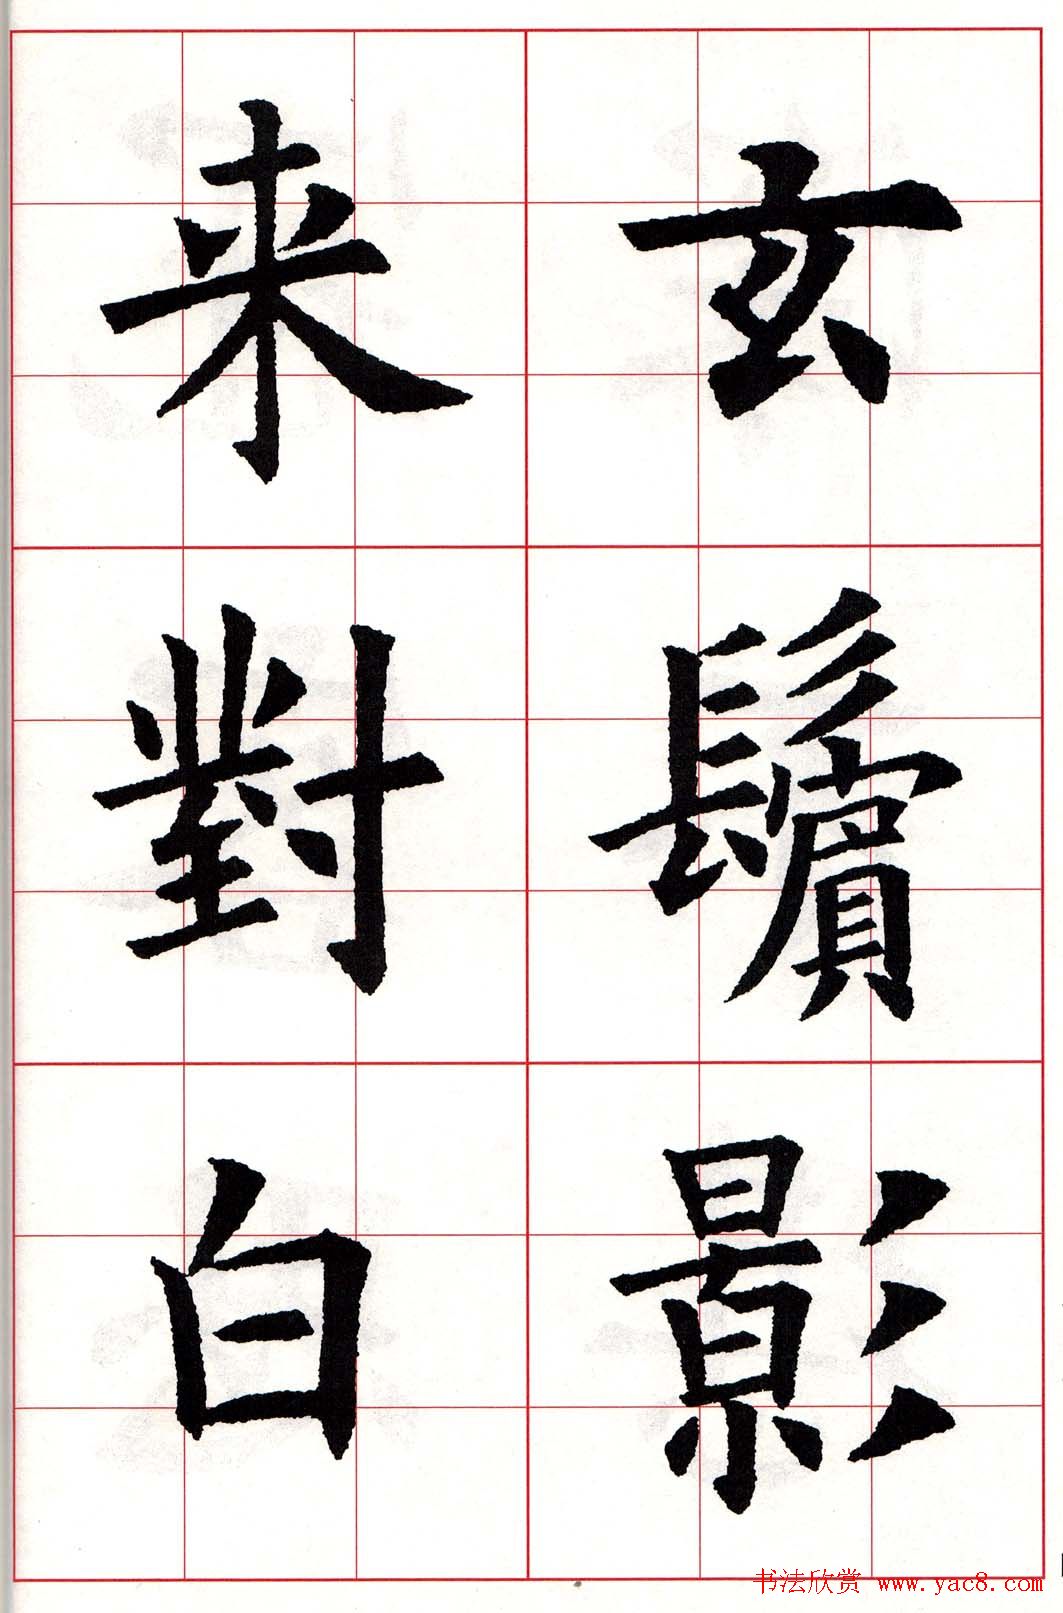 玄鬢影
来對白
书法欣赏 www.yac8.com